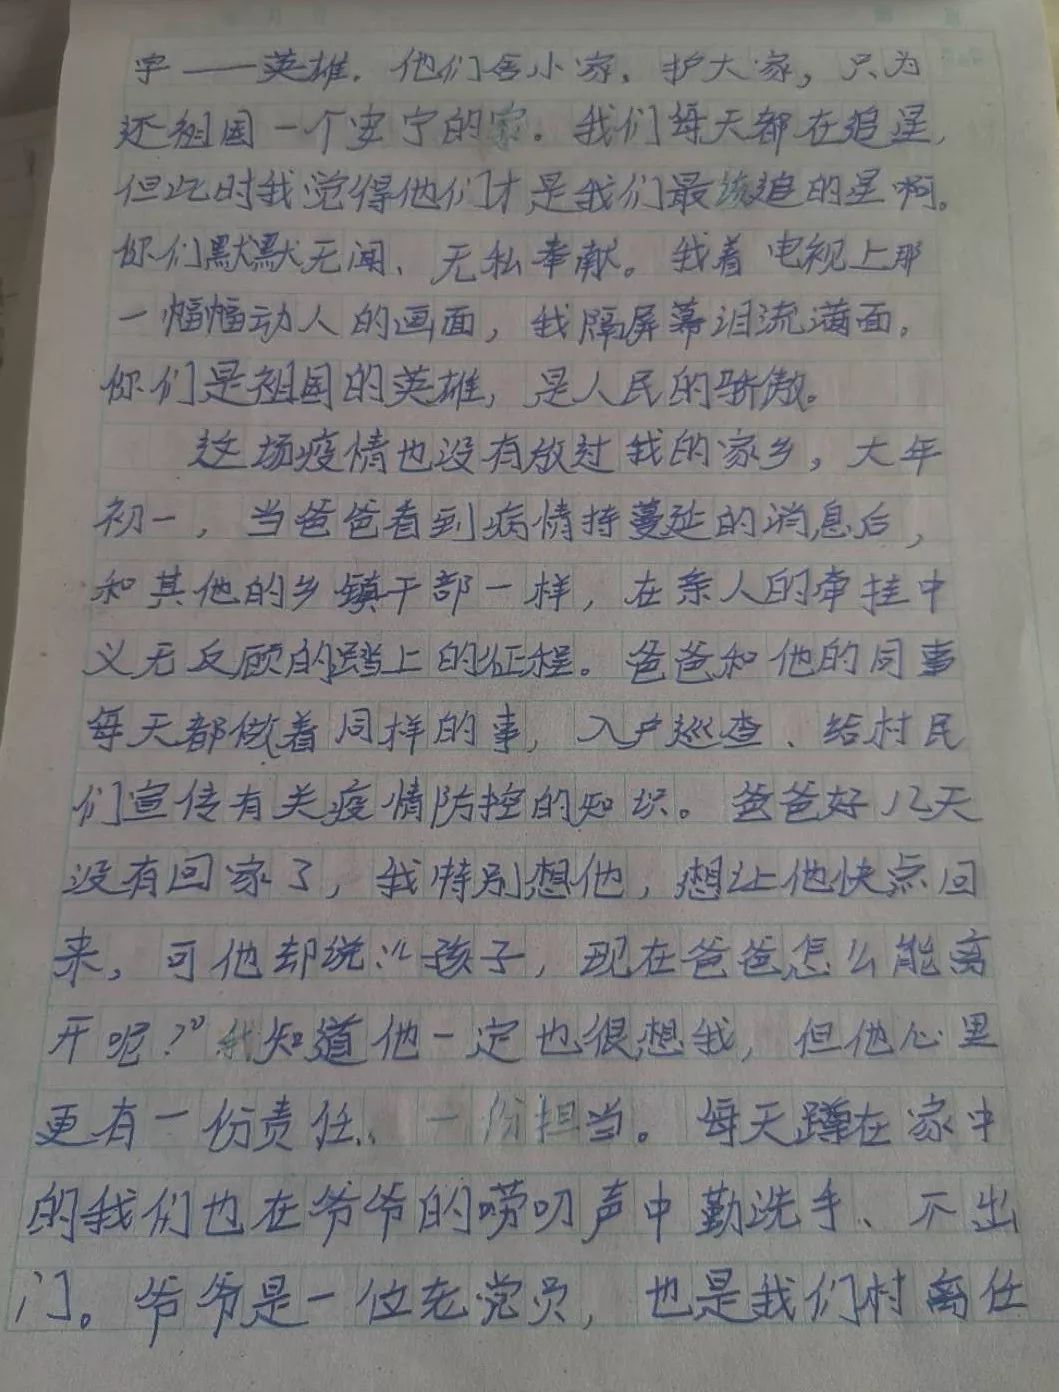 字——英雄. 他们舍小家, 护大家, 只为
还祖国一个安宁的家。我们每天都在追星,
但此时我觉得他们才是我们最该追的星啊。
你们默默无闻、无私奉献。我着电视上那
一幅幅动人的画面, 我隔屏幕泪流满面。
你们是祖国的英雄, 是人民的骄傲。
这场疫情也没有放过我的家乡, 大年
初一, 当爸爸看到病情持蔓延的消息后,
和其他的乡镇干部一样, 在亲人的牵挂中
义无反顾的踏上的征程。爸爸和他的同事
每天都做着同样的事, 入户巡查、给村民
们宣传有关疫情防控的知识。爸爸好几天
没有回家了, 我特别想他, 想让他快点回
来, 可他却说:“孩子, 现在爸爸怎么能离
开呢?”我知道他一定也很想我, 但他心里
更有一份责任、一份担当。每天蹲在家中
的我们也在爷爷的唠叨声中勤洗手、不出
门。爷爷是一位老党员, 也是我们村离任